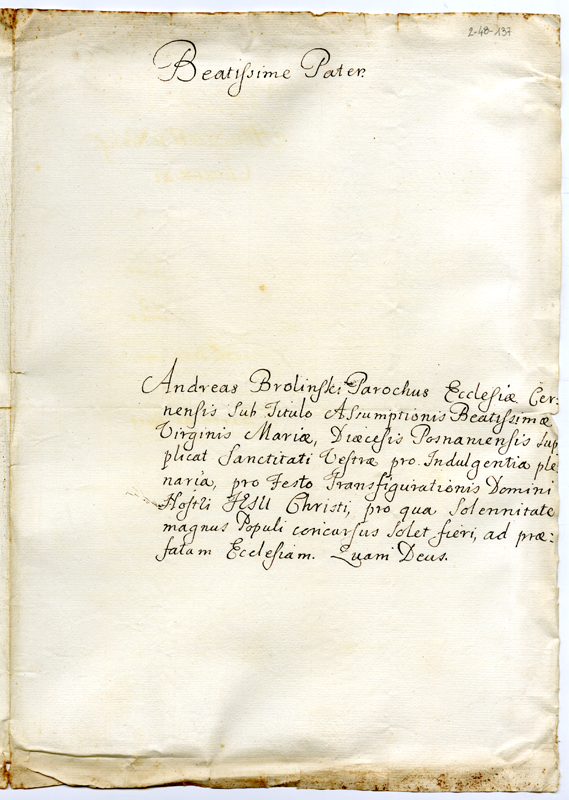 2-48-137
Beatissime Pater.
Andreas Brolinski Parochus Ecclesiæ Cer:
nensis Sub Titulo Assumptionis Beatissimæ
Virginis Mariæ, Diæcesis Posnaniensis Sup
plicat Sanctitati Vestræ pro Indulgentia ple
naria, pro Festo Transfigurationis Domini
Nostri JESU Christi, pro qua Solennitate
magnus Populi concursus solet fieri, ad præ:
fatam Ecclesiam. Quam Deus.